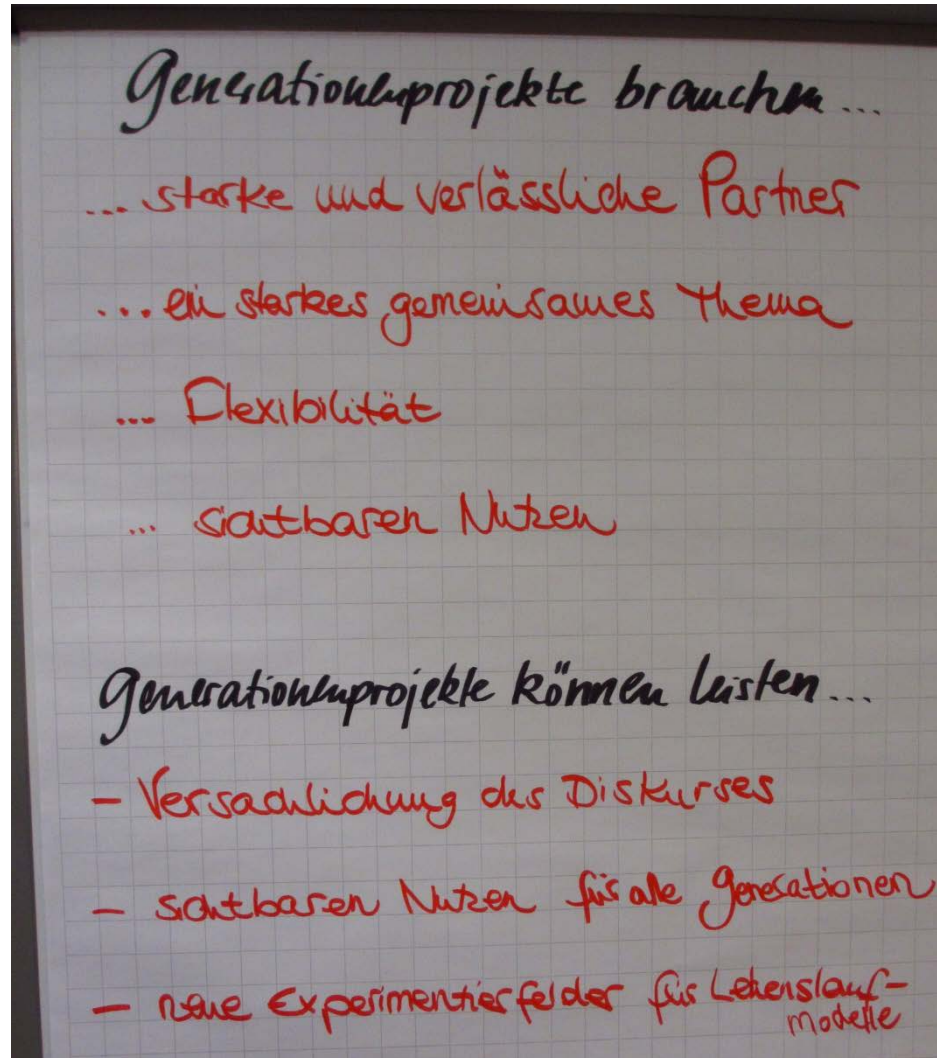 Generationenprojekte brauchen...
... starke und verlässliche Partner
... ein starkes gemeinsames Thema
... Flexibilität
... sichtbaren Nutzen
Generationenprojekte können leisten...
- Versachlichung des Diskurses
- sichtbaren Nutzen für alle Generationen
- neue Experimentierfelder für Lebenslauf-
modelle